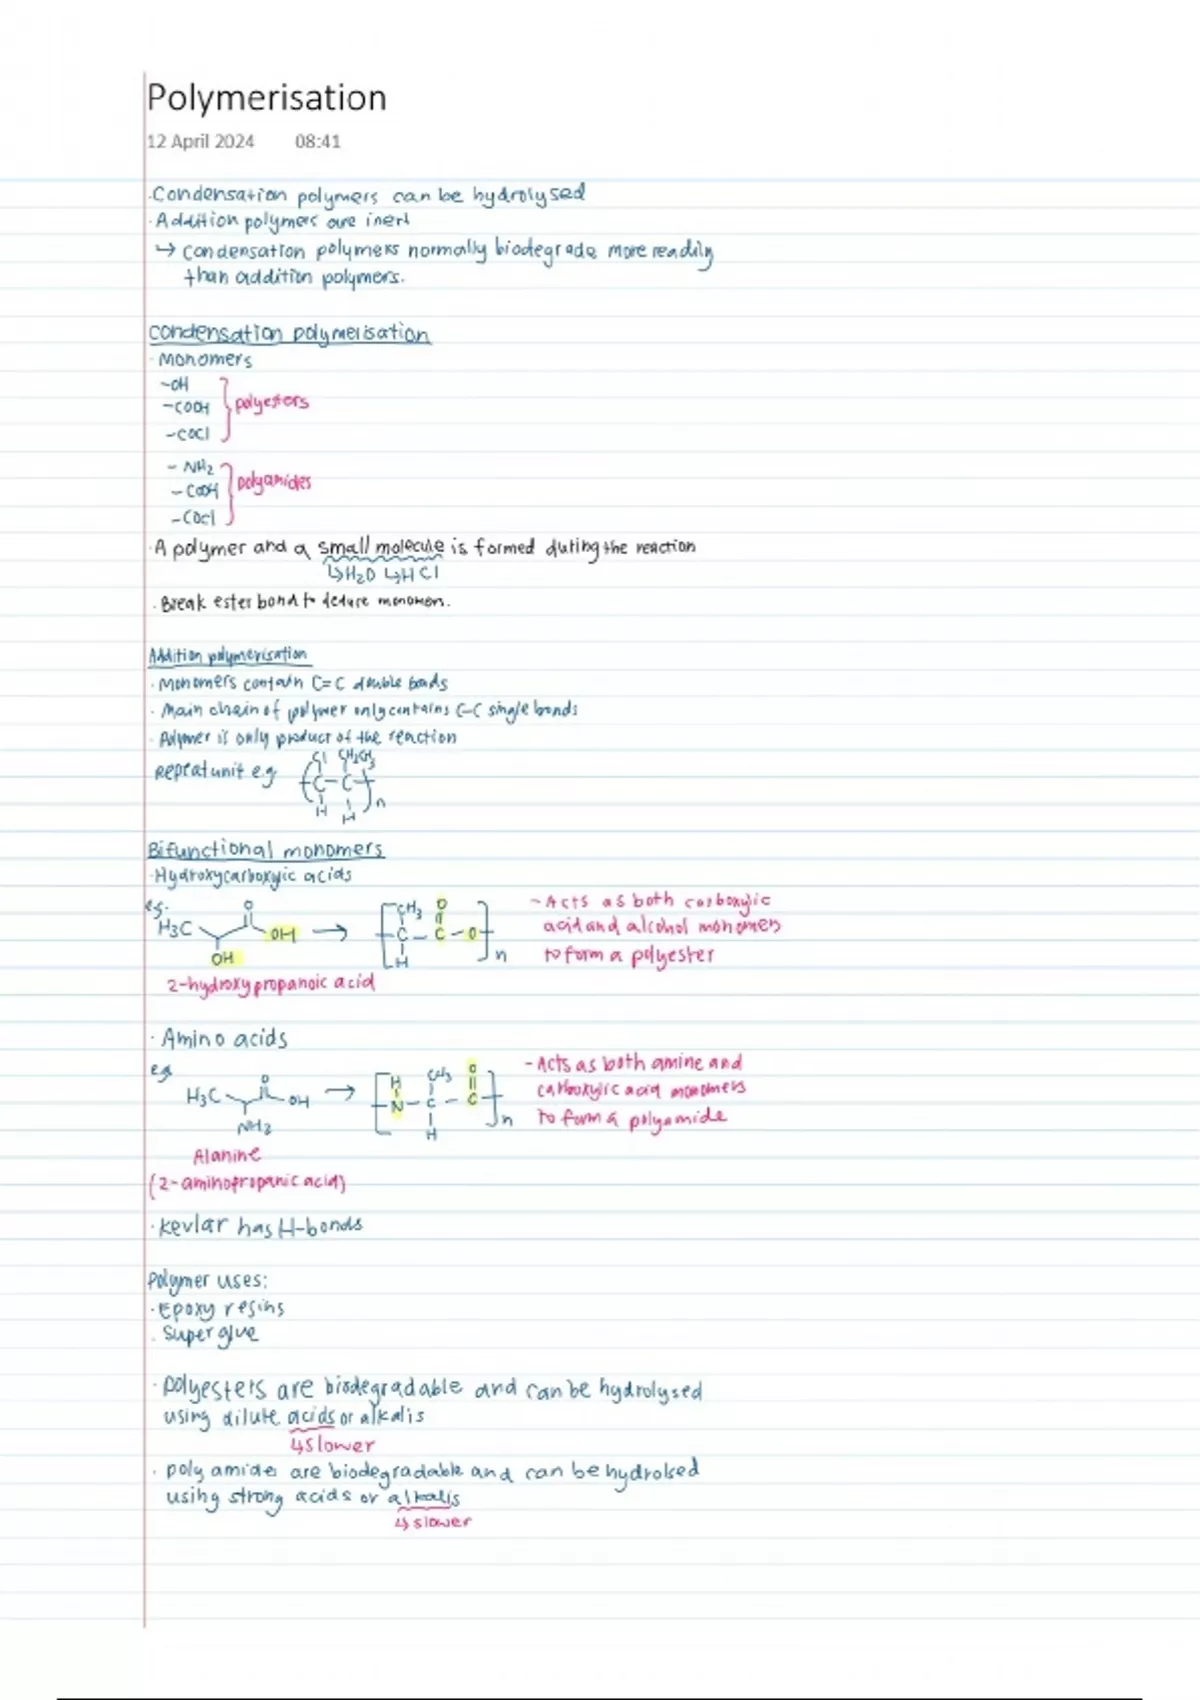 Polymerisation
12 April 2024 08:41
·Condensation polymers can be hydrolysed
·Addition polymers are inert
↳ Condensation polymers normally biodegrade more readily
than addition polymers.
Condensation polymerisation
·Monomers
-OH
-COOH
-COCl
polyesters
- NH₂
- COOH
-COCl
polyamides
·A polymer and a small molecule is formed during the reaction
↳H₂O ↳HCl
·Break ester bond to deduce monomers.
Addition polymerisation
·Monomers contain C=C double bonds
·Main chain of polymer only contains C-C single bonds
·Polymer is only product of the reaction
Repeat unit e.g
Cl CH₂CH₃
C-C
H H n
Bifunctional monomers
·Hydroxycarboxylic acids
e.g.
O
H₃C OH
OH
→
CH₃ O
C - C - O
H n
- Acts as both carboxylic
acid and alcohol monomers
to form a polyester
2-hydroxypropanoic acid
·Amino acids
e.g
O
H₃C OH
NH₂
→
H CH₃ O
N - C - C
H n
- Acts as both amine and
carboxylic acid monomers
to form a polyamide
Alanine
(2-aminopropanic acid)
·Kevlar has H-bonds
Polymer uses:
·Epoxy resins
·Superglue
·Polyesters are biodegradable and can be hydrolysed
using dilute acids or alkalis
↳slower
·polyamides are biodegradable and can be hydrolsed
using strong acids or alkalis
↳slower